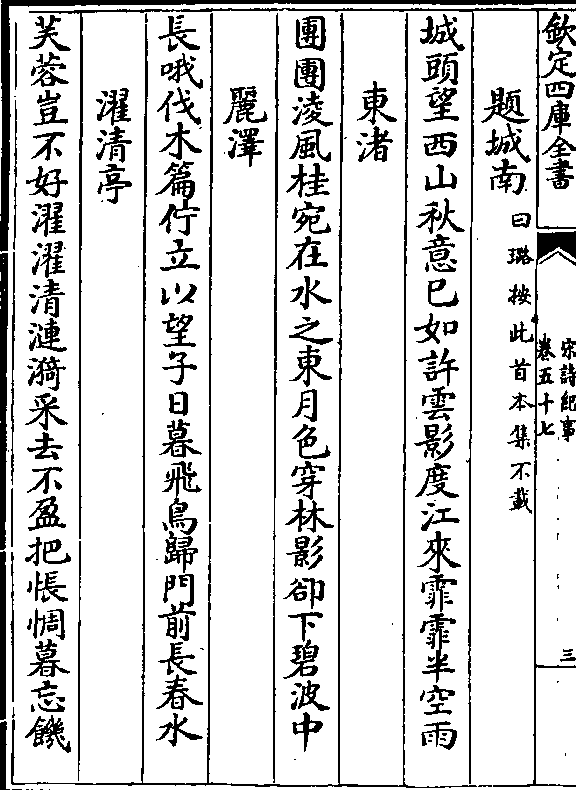 欽定四庫全書
宋詩紀事
卷五十七
三
題城南 曰璐按此首本集不載
城頭望西山秋意已如許雲影度江來霏霏半空雨
東渚
團團淩風桂宛在水之東月色穿林影卻下碧波中
麗澤
長哦伐木篇佇立以望子日暮飛鳥歸門前長春水
濯清亭
芙蓉豈不好濯濯清漣漪采去不盈把悵惆暮忘饑